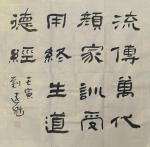 流傳萬代
顏家訓受
用終生道
德經
壬寅